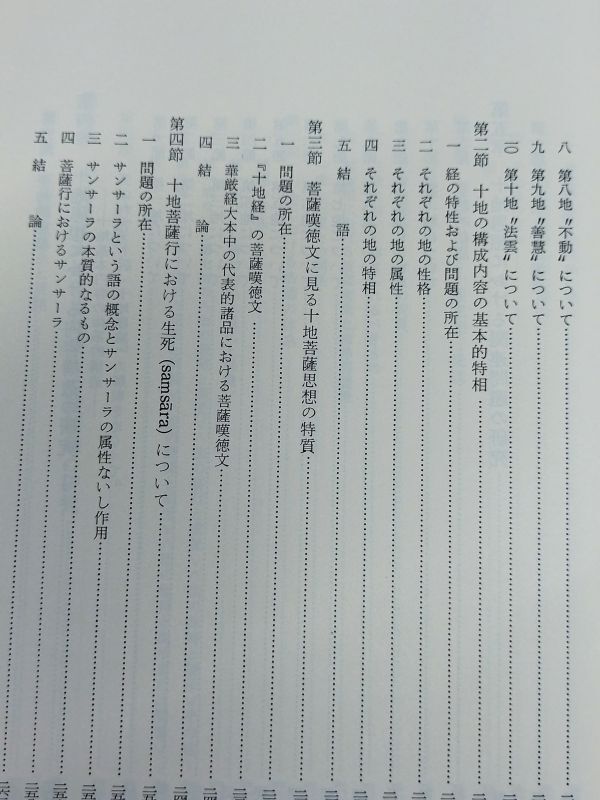 八 第八地〝不動〟について
九 第九地〝善慧〟について
一〇 第十地〝法雲〟について
第二節 十地の構成内容の基本的特相
一 経の特性および問題の所在
二 それぞれの地の性格
三 それぞれの地の属性
四 それぞれの地の特相
五 結語
第三節 菩薩嘆徳文に見る十地菩薩思想の特質
一 問題の所在
二 『十地経』の菩薩嘆徳文
三 華厳経大本中の代表的諸品における菩薩嘆徳文
四 結論
第四節 十地菩薩行における生死(saṃsāra)について
一 問題の所在
二 サンサーラという語の概念とサンサーラの属性ないし作用
三 サンサーラの本質的なるもの
四 菩薩行におけるサンサーラ
五 結論